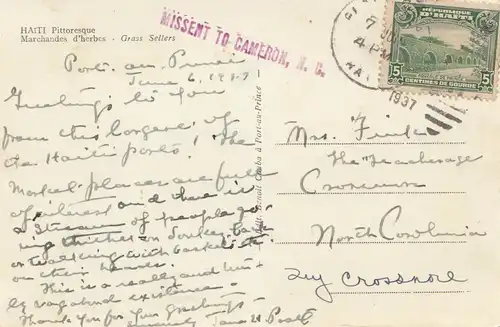 HAITI Pittoresque
Marchandes d'herbes - Grass Sellers
MISSENT TO CAMERON, N. C.
REPUBLIQUE
D'HAITI
15 15
CENTIMES DE GOURDE
7
4 PM
1937
Port-au-Prince
June 6, 1937
Greetings to you
from this largest of
the Haiti ports! The
market places are full
of interest and there is
a stream of people go-
ing thither on donkey back
or walking with baskets etc.
on their heads.
This is a really and
ly vagabond existence.
Thank you for your greetings -
Edit. Benoit Port-au-Prince
Mrs. Fink
The Teacherage
Crossnore
North Carolina
Try Crossnore